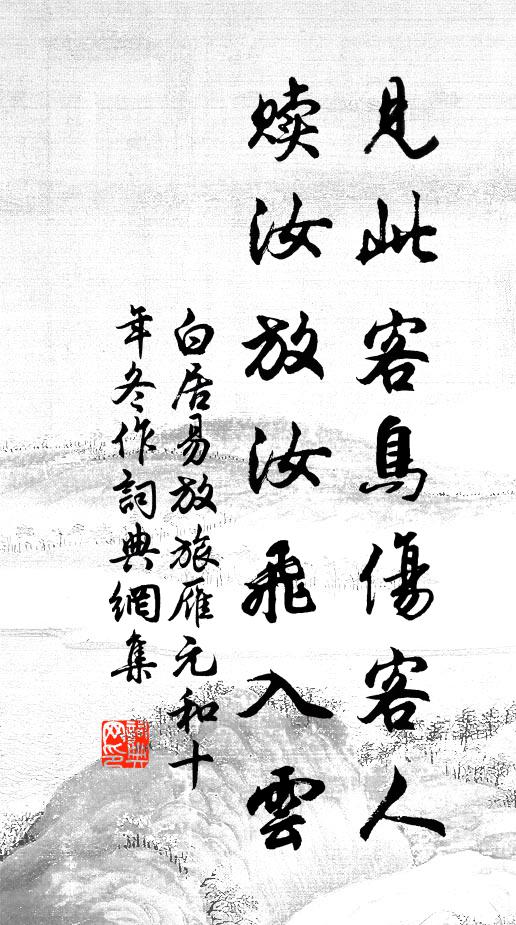 見此客鳥傷客人
赎汝放汝飛入雲
白居易放旅雁元和十
年冬作詞典網集